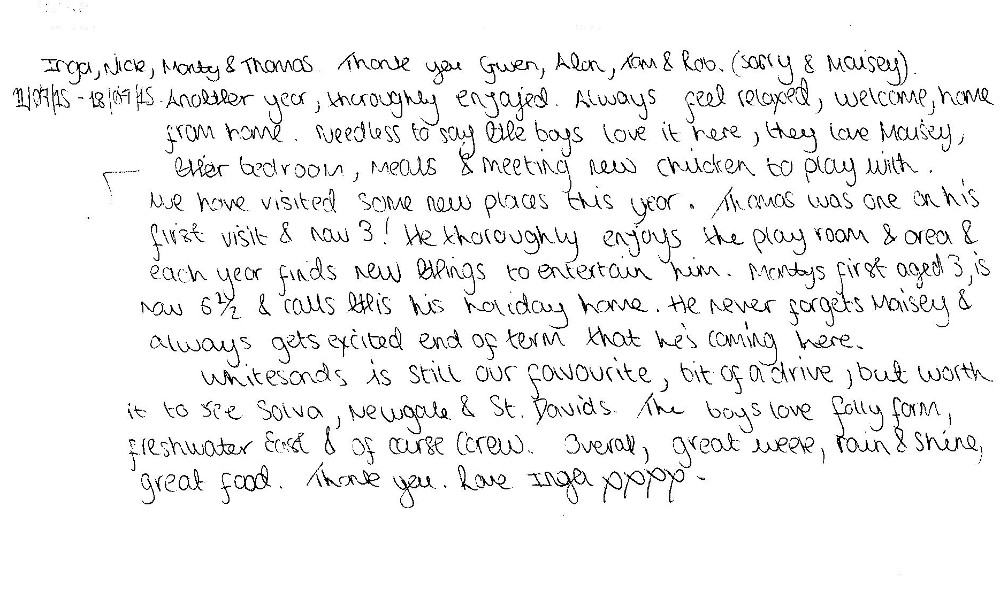 Inga, Nick, Monty & Thomas Thank you Gwen, Alan, Tom & Rob. (sorry & Maisey).
11/07/15 - 18/07/15. Another year, thoroughly enjoyed. Always feel relaxed, welcome, home
from home. Needless to say the boys love it here, they love Maisey,
their bedroom, meals & meeting new children to play with.
We have visited some new places this year. Thomas was one on his
first visit & now 3! He thoroughly enjoys the play room & area &
each year finds new things to entertain him. Montys first aged 3, is
now 6 1/2 & calls this his holiday home. He never forgets Maisey &
always gets excited end of term that he's coming here.
Whitesands is still our favourite, bit of a drive, but worth
it to see Solva, Newgale & St. Davids. The boys love folly farm,
freshwater East & of curse Carew. Overal, great week, rain & shine,
great food. Thank you. Love Inga xxxx.